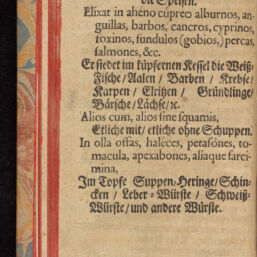 die Speisen.
Elixat in aheno cupreo alburnos, an-
guillas, barbos, cancros, cyprinos,
foxinos, fundulos (gobios,) percas,
salmones, &c.
Er siedet im küpfernen Kessel die Weiß-
Fische / Aalen / Barben / Krebse /
Karpen / Elritzen / Gründlinge /
Bärsche / Lächse / ꝛc.
Alios cum, alios sine squamis.
Etliche mit / etliche ohne Schuppen.
In olla offas, haleces, petasones, to-
macula, apexabones, aliaque farci-
mina.
Im Topfe Suppen / Heringe / Schin-
cken / Leber-Würste / Schweiß-
Würste / und andere Würste.